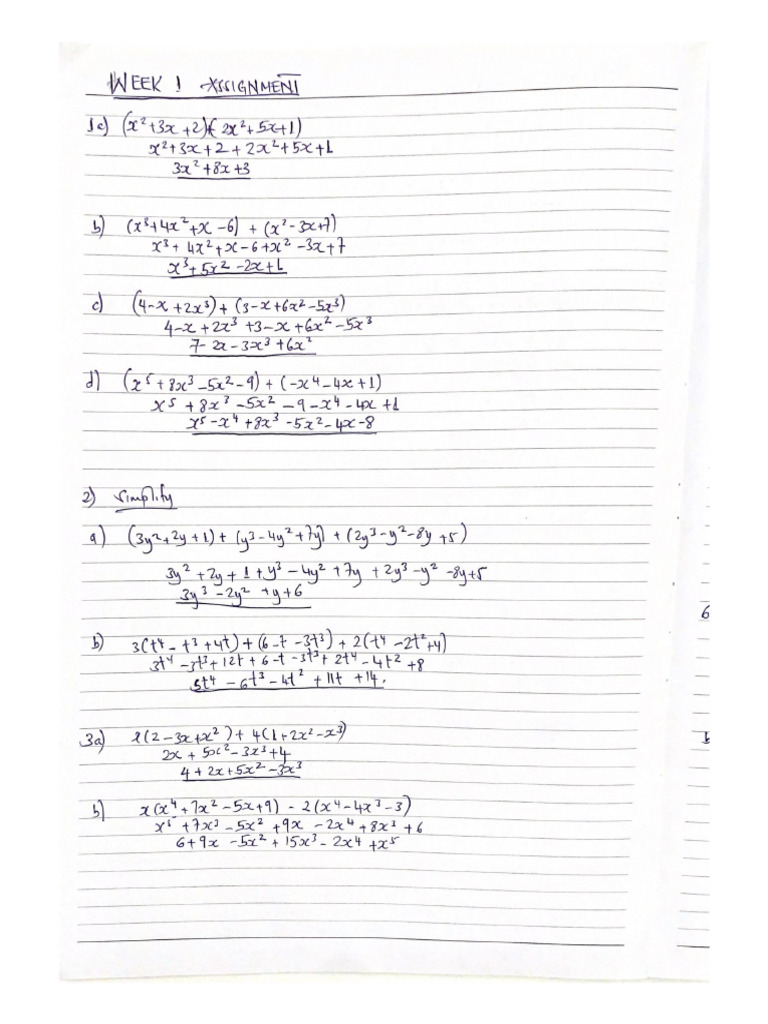 WEEK 1 ASSIGNMENT
1a) (x²+3x+2)+(2x²+5x+1)
x²+3x+2+2x²+5x+1
3x²+8x+3
b) (x³+4x²+x-6) + (x²-3x+7)
x³+4x²+x-6+x²-3x+7
x³+5x²-2x+1
c) (4-x+2x³)+(3-x+6x²-5x³)
4-x+2x³+3-x+6x²-5x³
7-2x-3x³+6x²
d) (x⁵+8x³-5x²-9)+(-x⁴-4x+1)
x⁵+8x³-5x²-9-x⁴-4x+1
x⁵-x⁴+8x³-5x²-4x-8
2) Simplify
a) (3y²+2y+1)+(y³-4y²+7y)+(2y³-y²-8y+5)
3y²+2y+1+y³-4y²+7y+2y³-y²-8y+5
3y³-2y²+y+6
b) 3(t⁴-t³+4t)+(6-t-3t³)+2(t⁴-2t²+4)
3t⁴-3t³+12t+6-t-3t³+2t⁴-4t²+8
5t⁴-6t³-4t²+11t+14.
3a) x(2-3x+x²)+4(1+2x²-x³)
2x+5x²-3x³+4
4+2x+5x²-3x³
b) x(x⁴+7x²-5x+9)-2(x⁴-4x³-3)
x⁵+7x³-5x²+9x-2x⁴+8x³+6
6+9x-5x²+15x³-2x⁴+x⁵
6